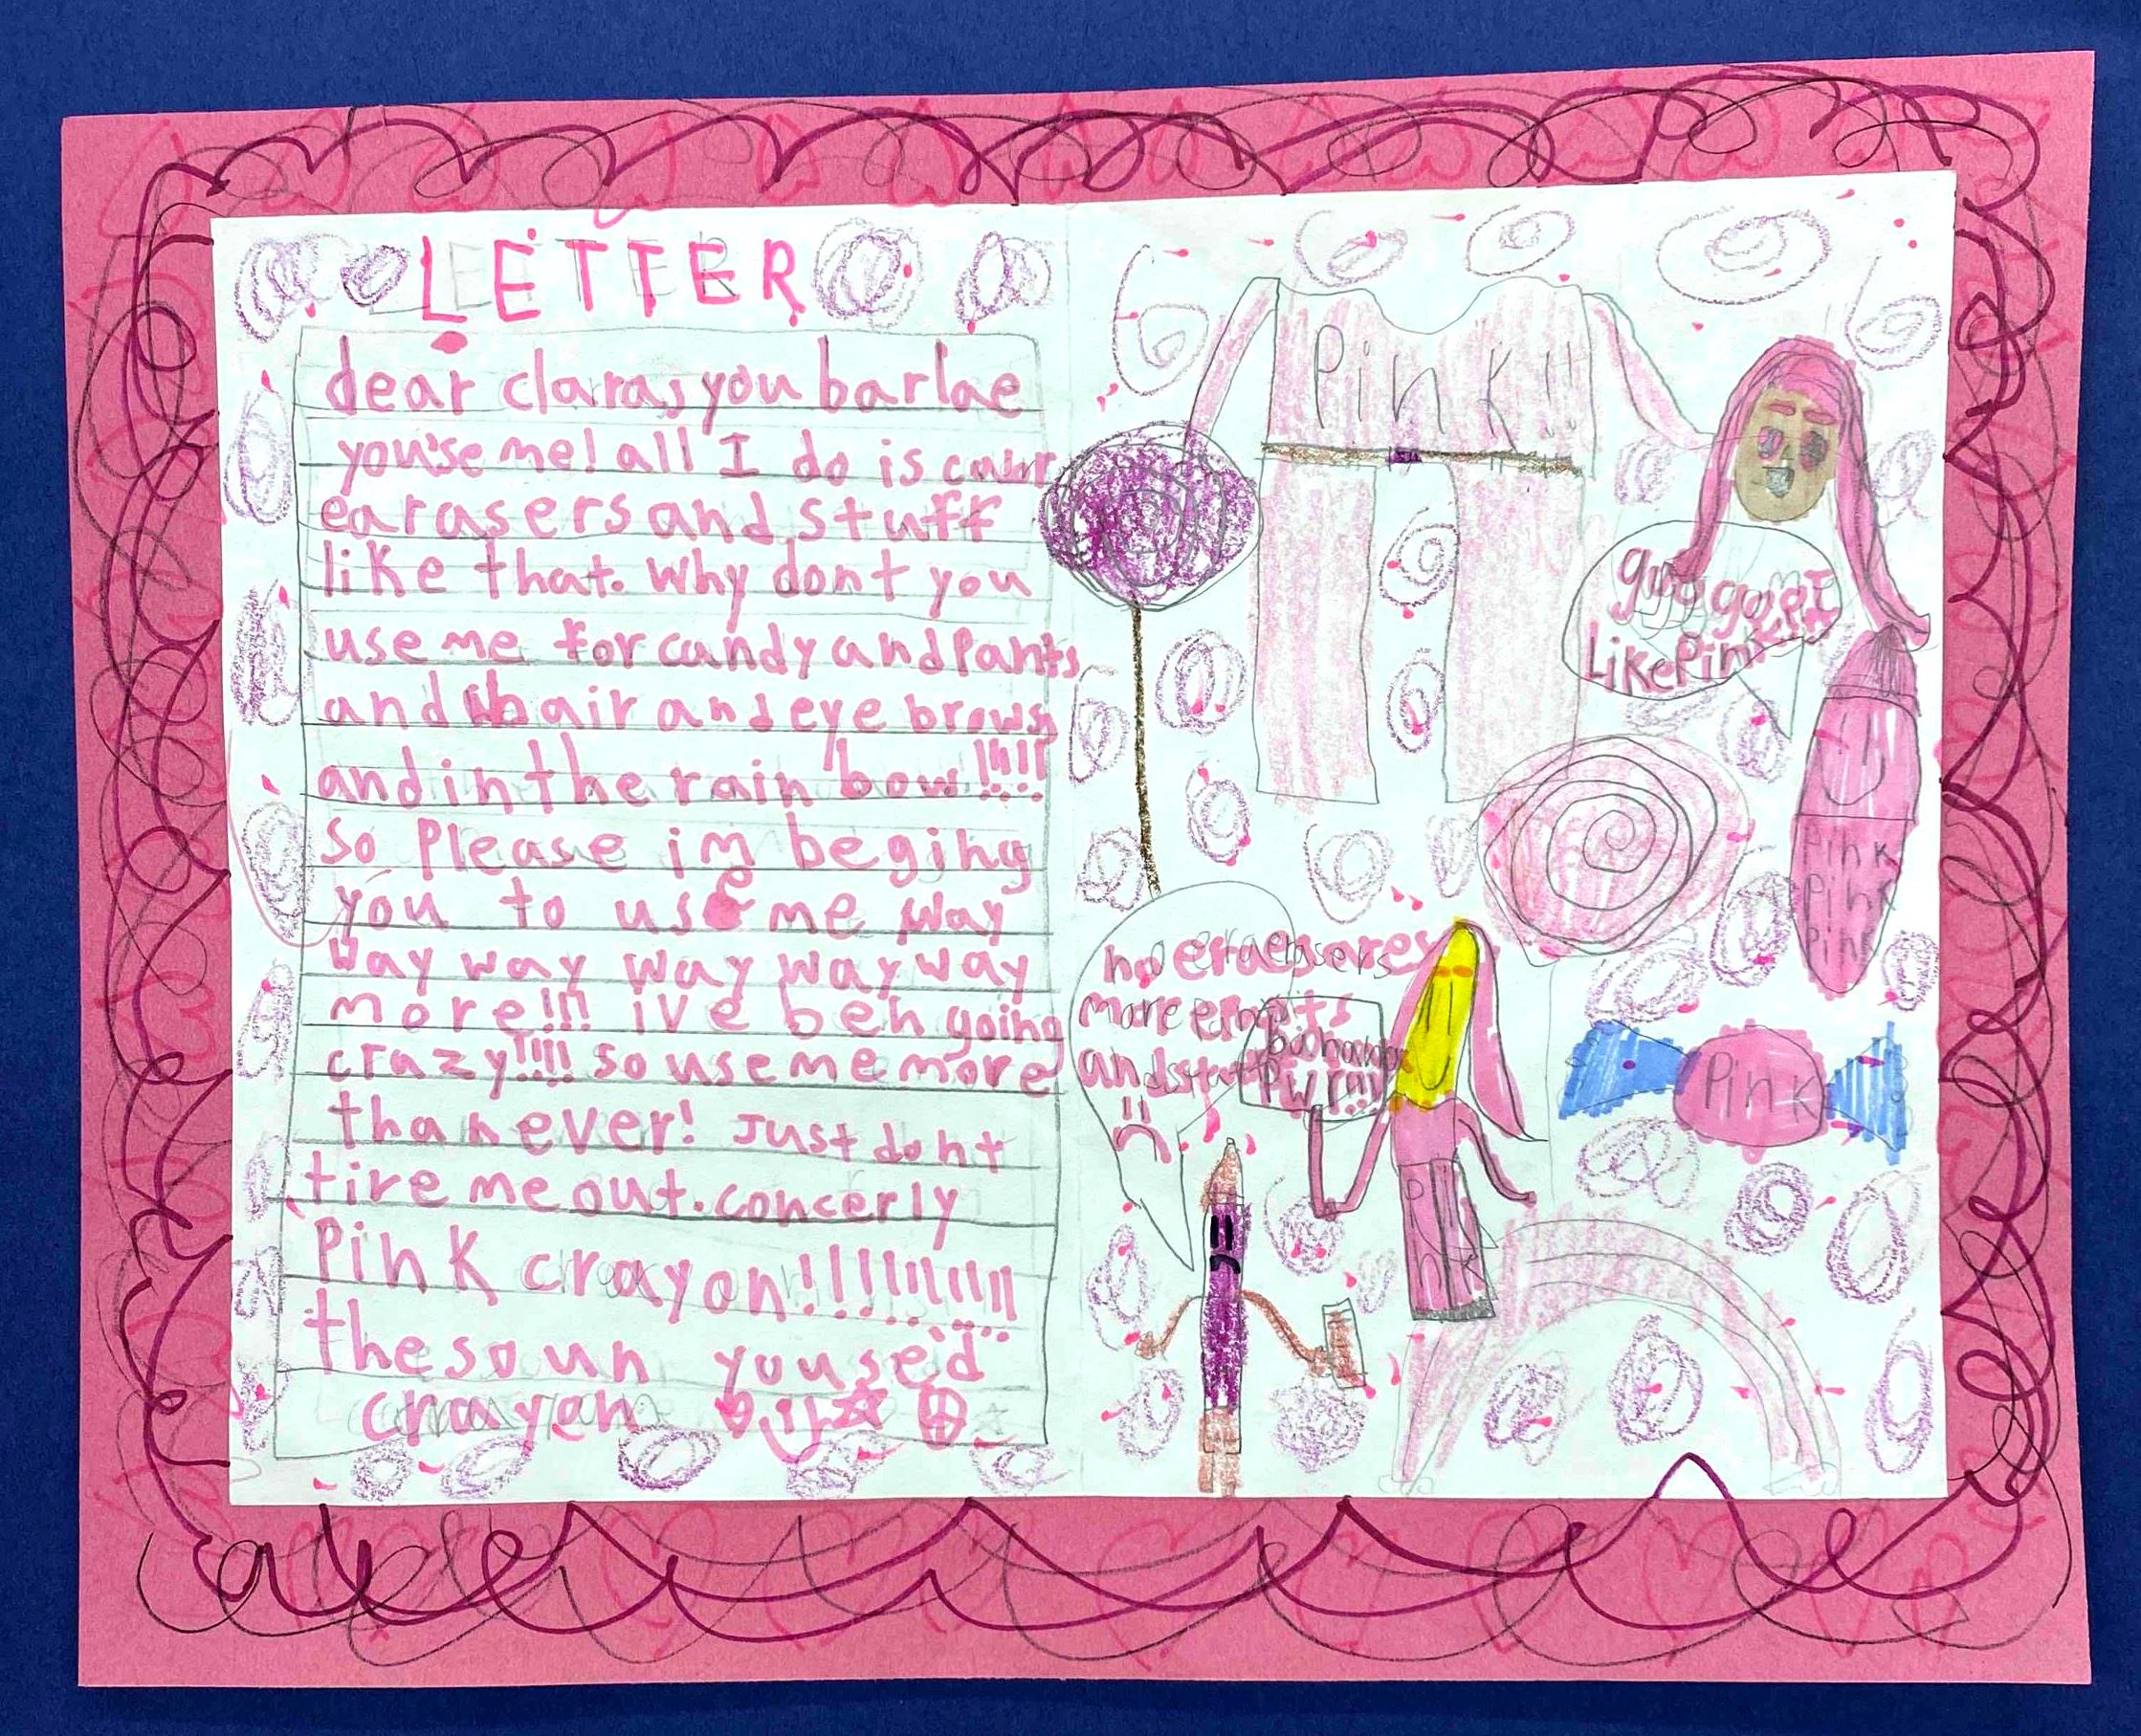 LETTER
dear claras you barlae
you'se me! all I do is
earasers and stuff
like that. Why dont you
use me for candy and Pants
and hair and eye brows
and in the rain bow!!!!
So Please im beging
you to use me way
way way way way way
more!!! ive beh going
crazy!!!! so use me more
than ever! Just dont
tire me out. concerly
Pink crayon!!!!!!!!!!
the soun youse'd
crayen
Pink!!
I
Like Pink
Pink
Pink
Pink
no
more
and
Pink
Pink